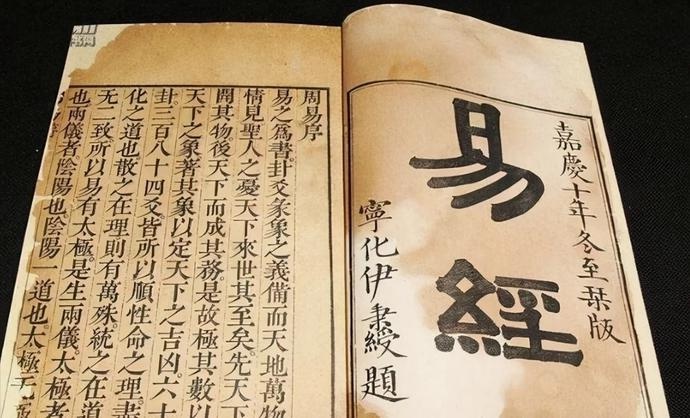 嘉慶十年冬至栞版
易經
寧化伊秉綬題
周易序
易之爲書卦爻彖象之義備而天地萬物
情見聖人之憂天下來世其至矣先天
開其物後天下而成其務是故極其數以
天下之象著其象以定天下之吉凶六十
卦三百八十四爻皆所以順性命之理盡
化之道也散之在理則有萬殊統之在道
无一致所以易有太極是生兩儀太極者
也兩儀者陰陽也陰陽一道也太極无